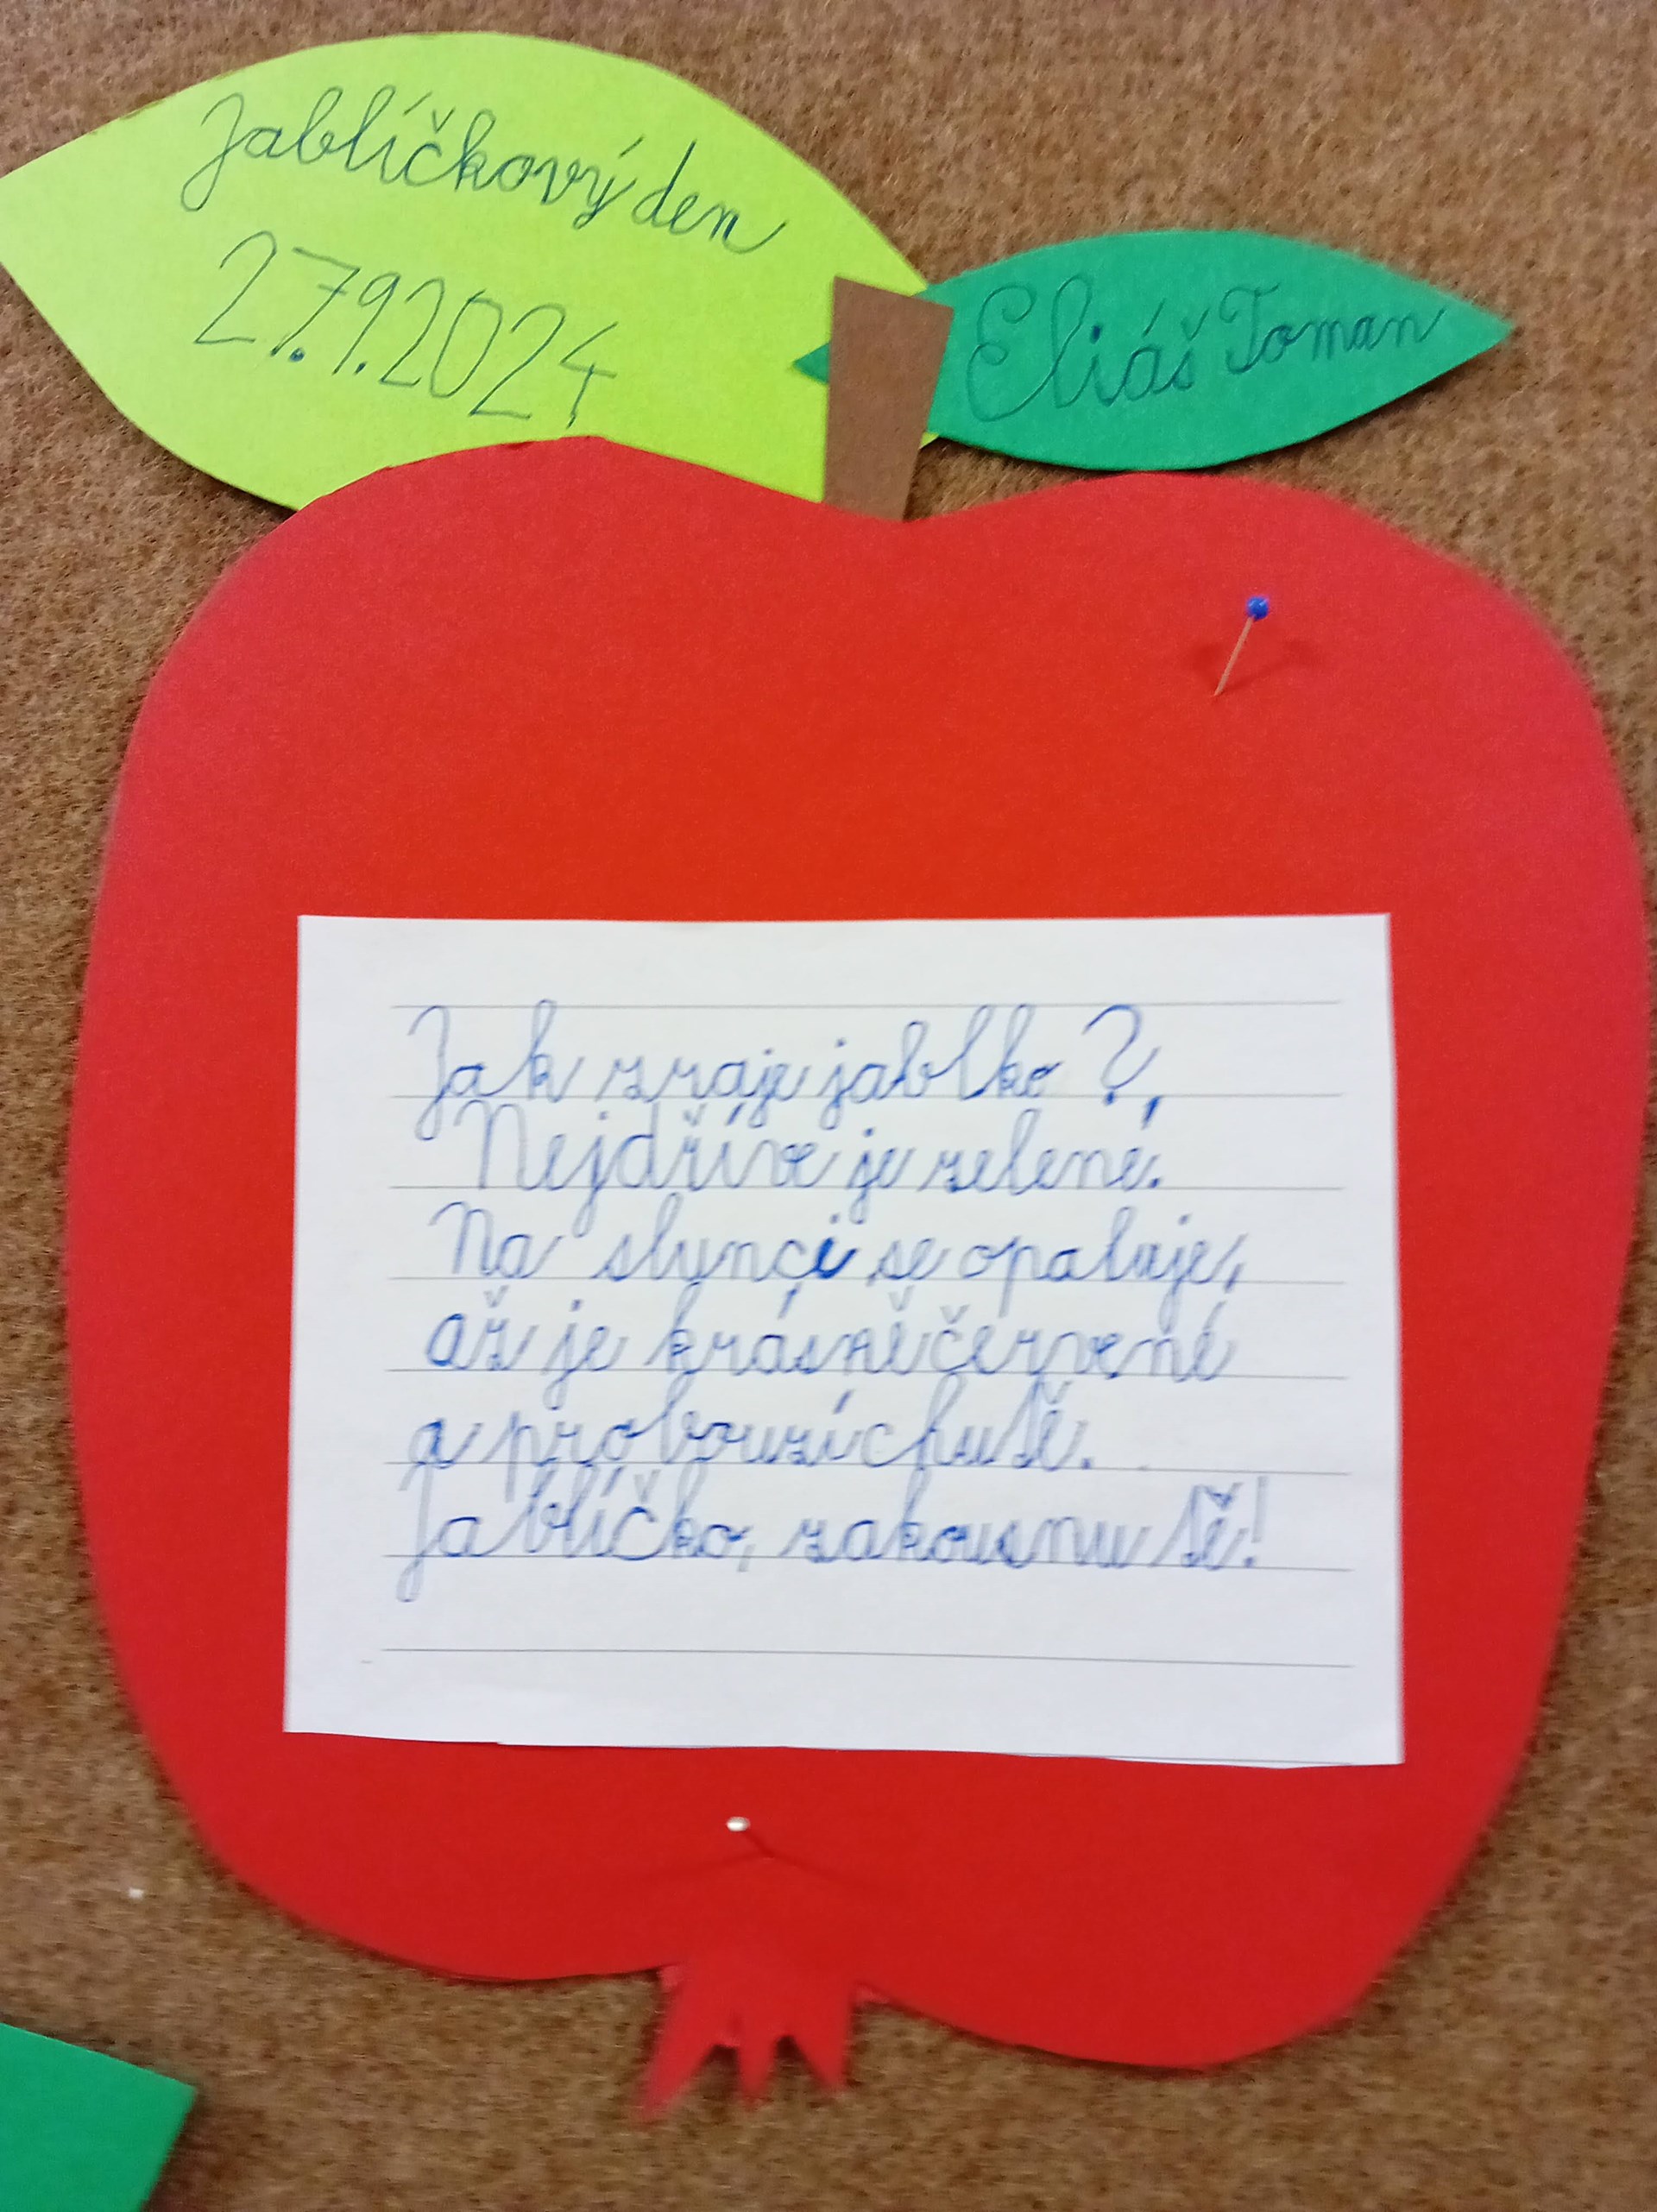 Jablíčkový den
27.9.2024
Eliáš Toman
Jak zraje jablko?
Nejdříve je zelené.
Na slunci se opaluje,
až je krásně červené
a probouzí chutě.
Jablíčko, zakousnu tě!